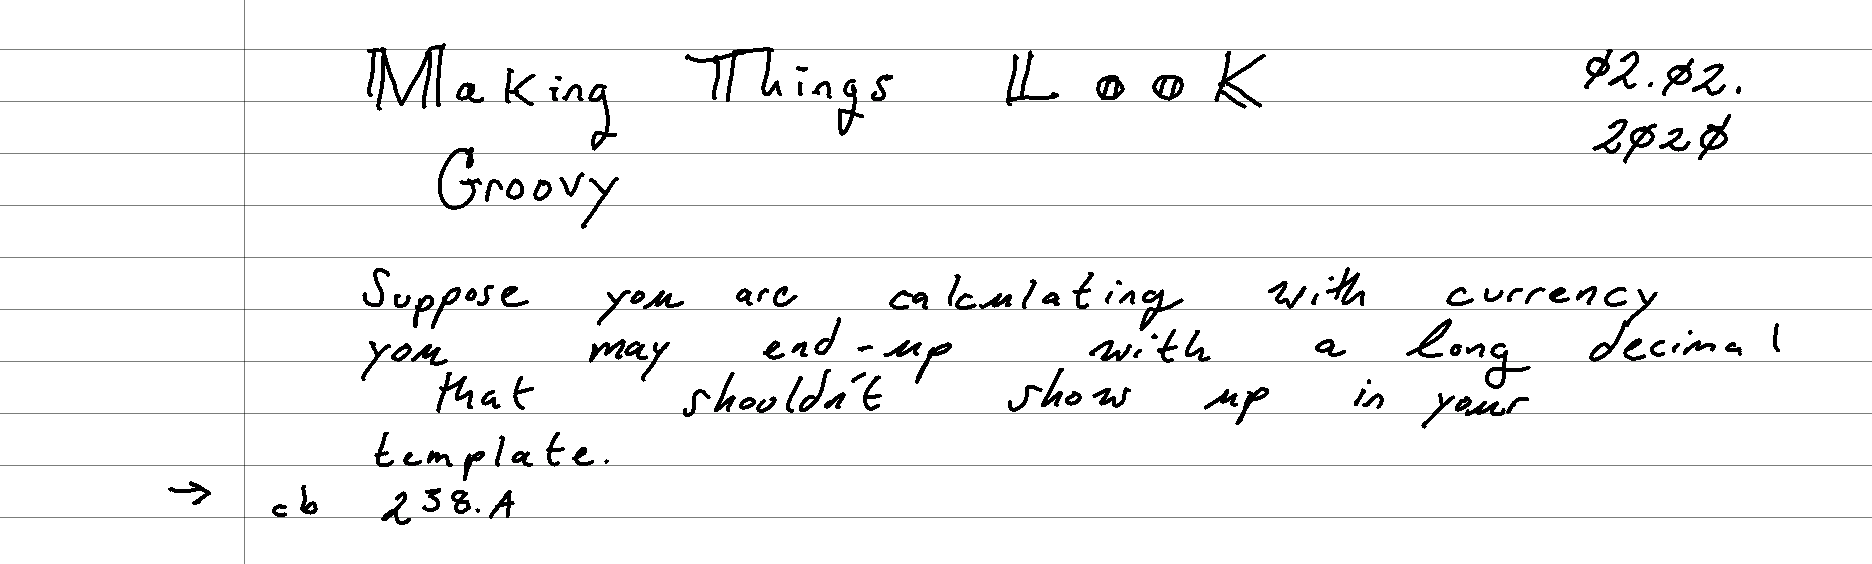 Making Things Look
Groovy
02.02.
2020
Suppose you are calculating with currency
you may end-up with a long decimal
that shouldn't show up in your
template.
→ cb 238.A